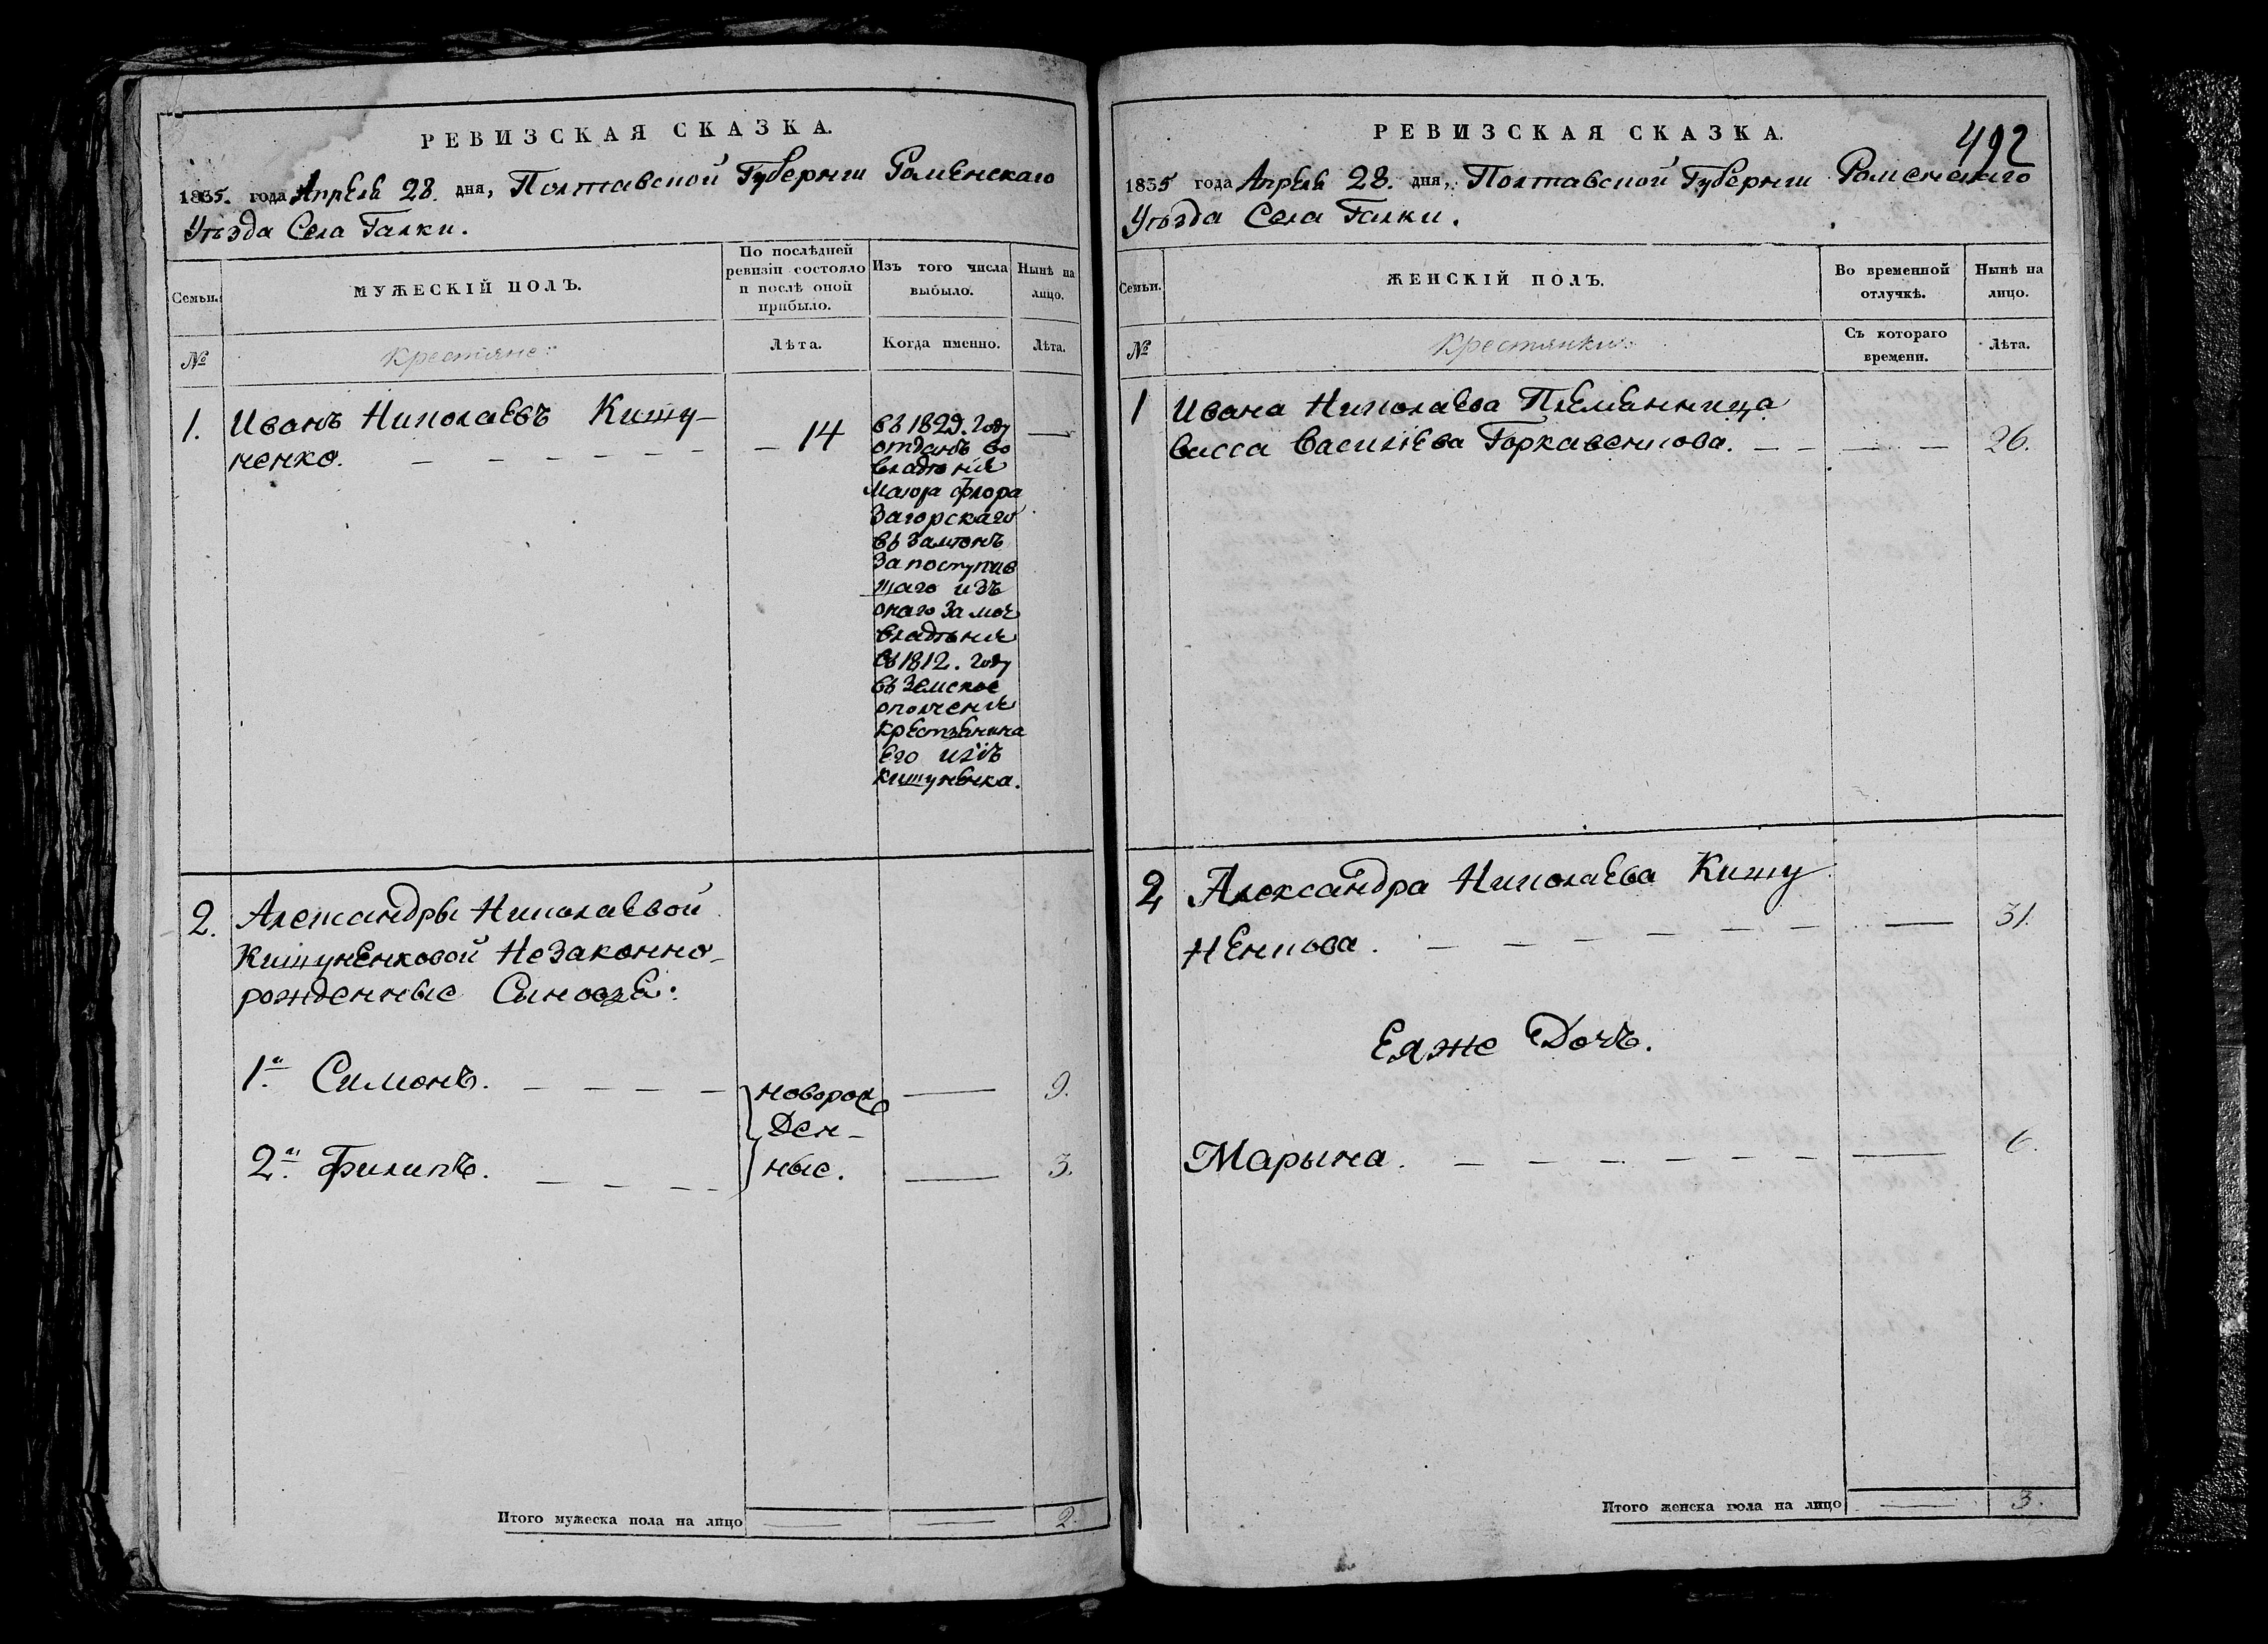 РЕВИЗСКАЯ СКАЗКА.
1835. года Апреля 28. дня, Полтавской Губернии Роменскаго
Уѣзда Села Галки.
Семьи.
МУЖЕСКІЙ ПОЛЪ.
По послѣдней ревизіи состояло и послѣ оной прибыло.
Изъ того числа выбыло.
Нынѣ на лицо.
№
Крестьяне:
Лѣта.
Когда именно.
Лѣта.
1. Иванъ Николаевъ Кишу-
ненко. — — — — — — — 14 —
въ 1829. году
отданъ во
владѣніе
Маіора Флора
Загорскаго
въ замѣнъ
запоступив
шаго изъ
онаго за мое
владѣніе
въ 1812. году
въ Земское
ополченіе
крестьянина
Его
Кишуненка.
2. Александры Николаевой
Кишуненковой Незаконно-
рожденные Сыновья:
1й Симонъ. — — — — новорож — 9.
Ден-
2й Филипъ. — — — — ные. — 3.
Итого мужеска пола на лицо — — 2.
492
РЕВИЗСКАЯ СКАЗКА.
1835 года Апреля 28. дня, Полтавской Губернии Роменскаго
Уѣзда Села Галки.
Семьи.
ЖЕНСКІЙ ПОЛЪ.
Во временной отлучкѣ.
Нынѣ на лицо.
№
Крестянки:
Съ котораго времени.
Лѣта.
1 Ивана Николаева Племенница
Васса Василіева Горкавенкова. — — — — 26.
2 Александра Николаева Кишу
Ненкова. — — — — — — — 31.
Еяже Дочь.
Марына. — — — — — — — 6.
Итого женска пола на лицо — 3.